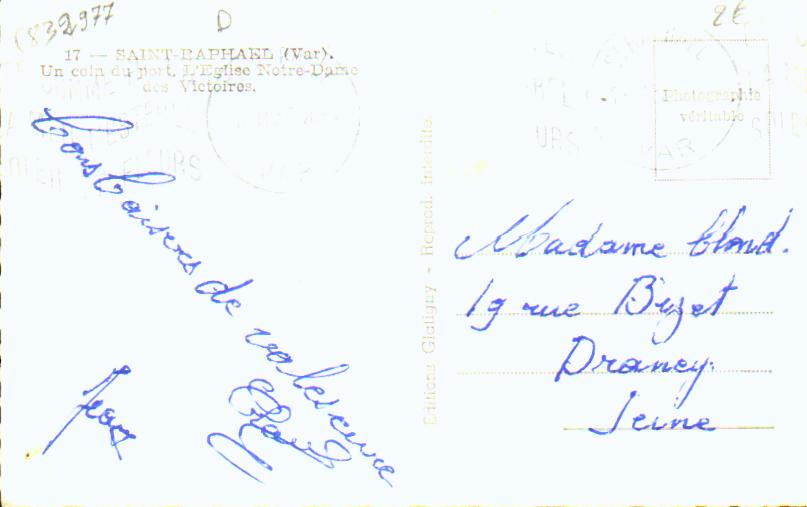 (832977
D
2€
17 — SAINT-RAPHAEL (Var).
Un coin du port. L'Eglise Notre-Dame
des Victoires.
Photographie
véritable
Editions Glatigny - Reprod. interdite.
Bons baisers de valescure
Jean
Madame Blond.
19 rue Bizet
Drancy.
Seine
VAR